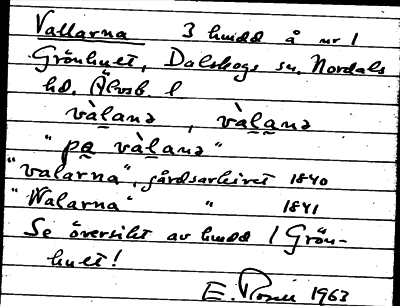 Vallarna 3 hmdd å nr 1
Grönhult, Dalskogs sn. Nordals
hd. Älvsb. l
vàl̰a̰nə, vàl̰a̰nə
"pa̰ vàl̰anə"
"valarna", gårdsarkivet 1840
"Walarna" " 1841
Se översikt av hmdd / Grön-
hult!
E. Rosén 1963